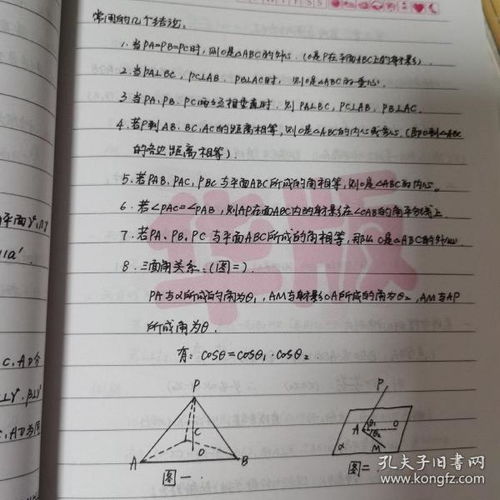 常用的几个结论.
1. 当PA=PB=PC时, 则O是△ABC的外心. (O是P在平面ABC上的射影).
2. 当PA⊥BC, PC⊥AB, PB⊥AC时, 则O是△ABC的垂心.
3. 当PA、PB、PC两两互相垂直时, 则PA⊥BC, PC⊥AB, PB⊥AC.
4. 若P到AB、BC、AC的距离相等, 则O是△ABC的内心或旁心. (即O到△ABC
的各边距离相等).
5. 若PAB, PAC, PBC与平面ABC所成的角相等, 则O是△ABC的内心.
6. 若∠PAC=∠PAB, 则AP在面ABC内的射影在∠CAB的角平分线上
7. 若PA、PB、PC与平面ABC所成的角相等, 那么O是△ABC的外心.
8. 三面角关系. (图二).
PA与α所成的角为θ₁, AM与射影OA所成的角为θ₂, AM与AP
所成角为θ.
有: cosθ=cosθ₁·cosθ₂
P
A
C
O
B
图一
P
A
θ₁
θ₂
O
M
α
图二
平面
C, AD
孔夫子旧书网